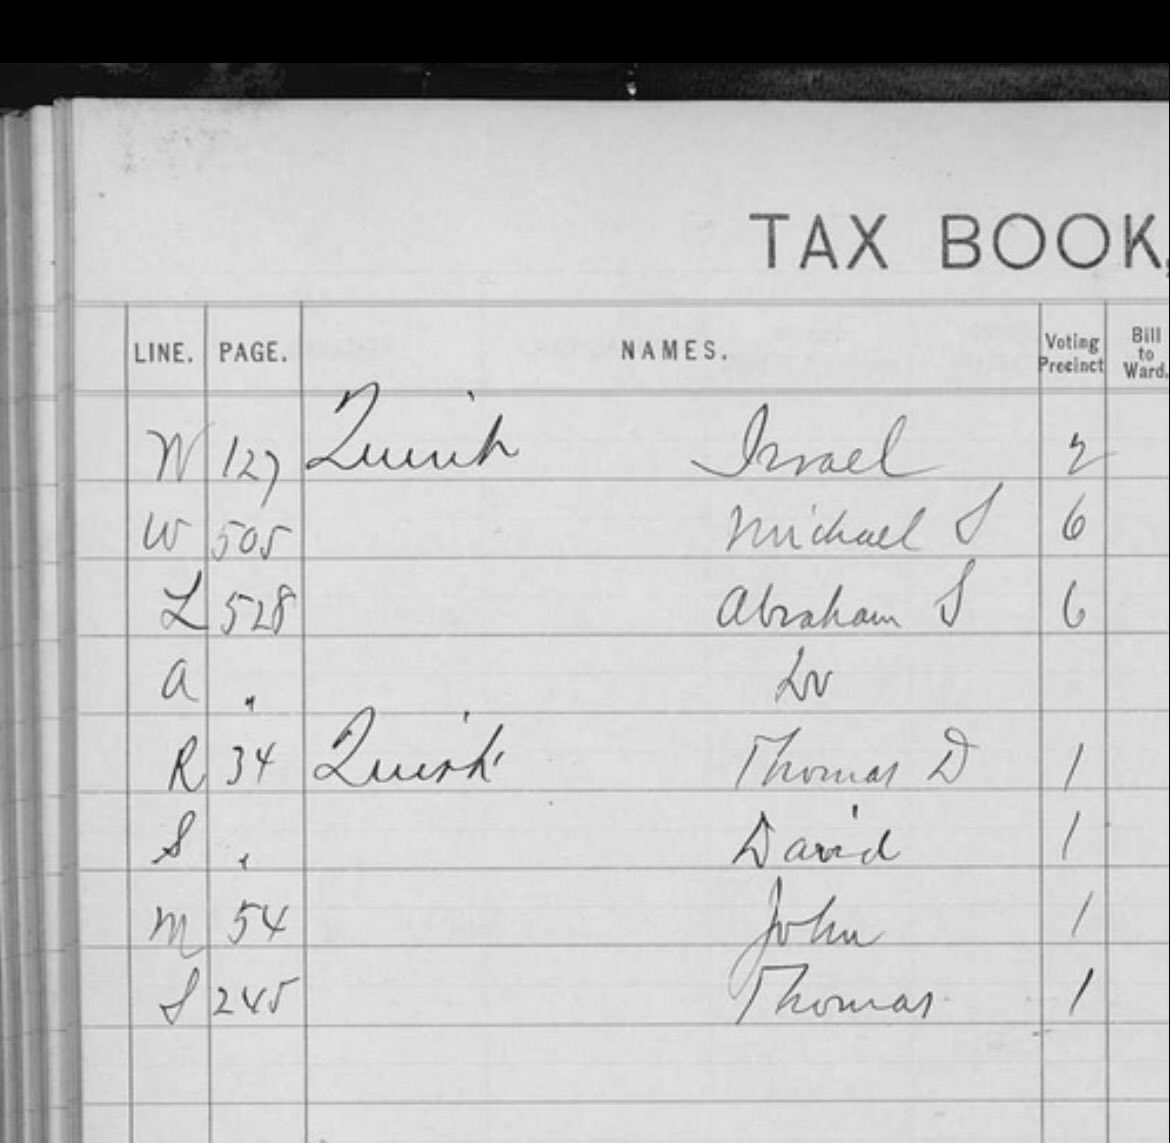 TAX BOOK,
LINE. PAGE. NAMES. Voting Precinct Bill to Ward.
W 127 Israel 2
W 505 Michael S 6
L 528 Abraham S 6
a "
R 34 Quirk Thomas D 1
S " David 1
M 54 John 1
S 245 Thomas 1